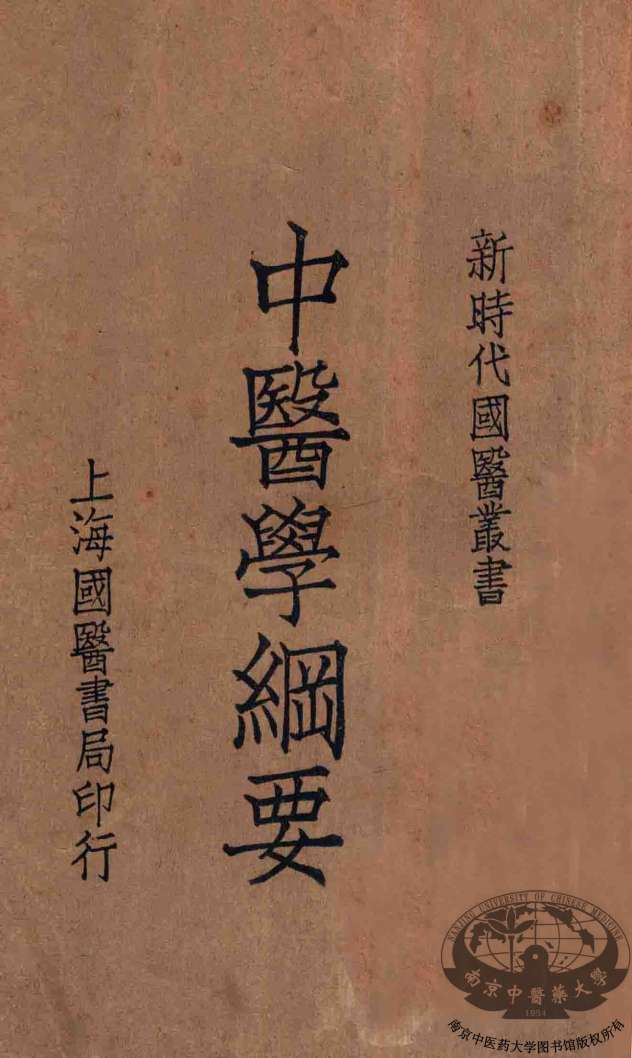 新時代國醫叢書
中醫學綱要
上海國醫書局印行
NANJING UNIVERSITY OF CHINESE MEDICINE
南京中醫藥大學
1954
南京中医药大学图书馆版权所有